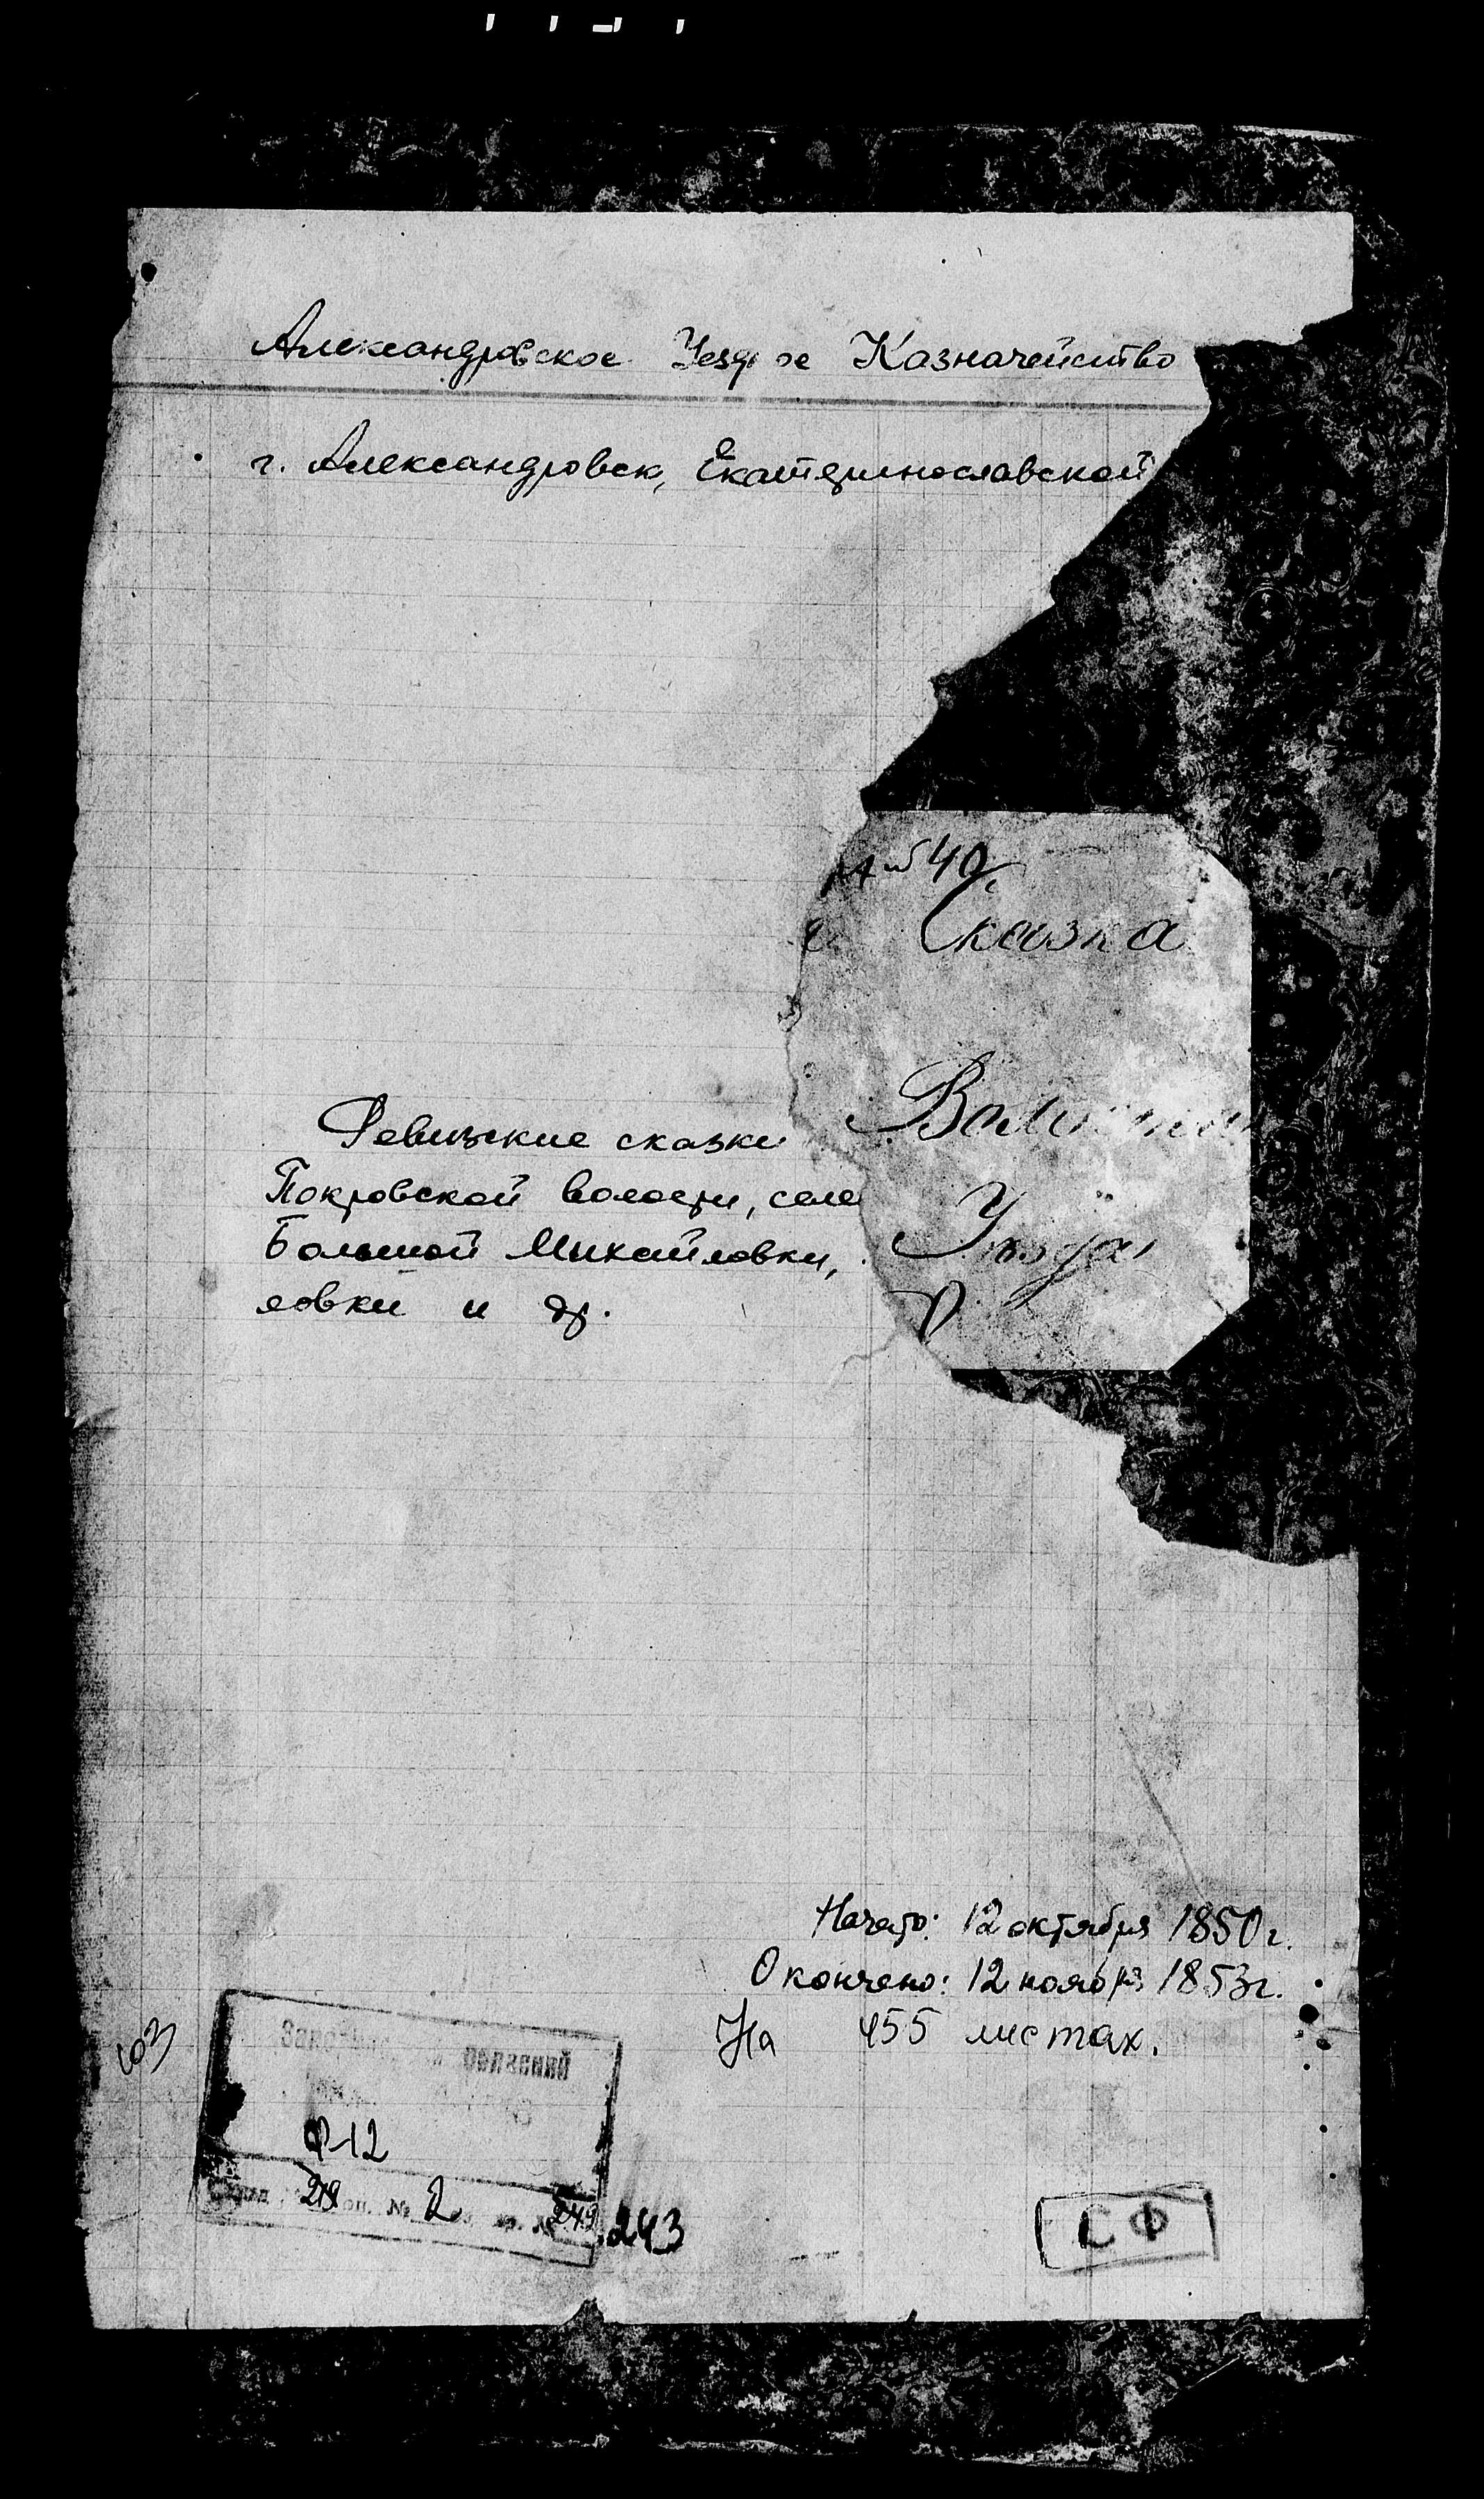 Александровское Уездное Казначейство
г. Александровск, Екатеринославской
40
Сказка
Волости
Уезда
Ревизские сказки
Покровской волости, селе
Большой Михайловки,
ловки и др.
Начато: 12 октября 1850 г.
Окончено: 12 ноября 1853 г.
На 455 листах.
Ф-12
219 2 249 243
СФ